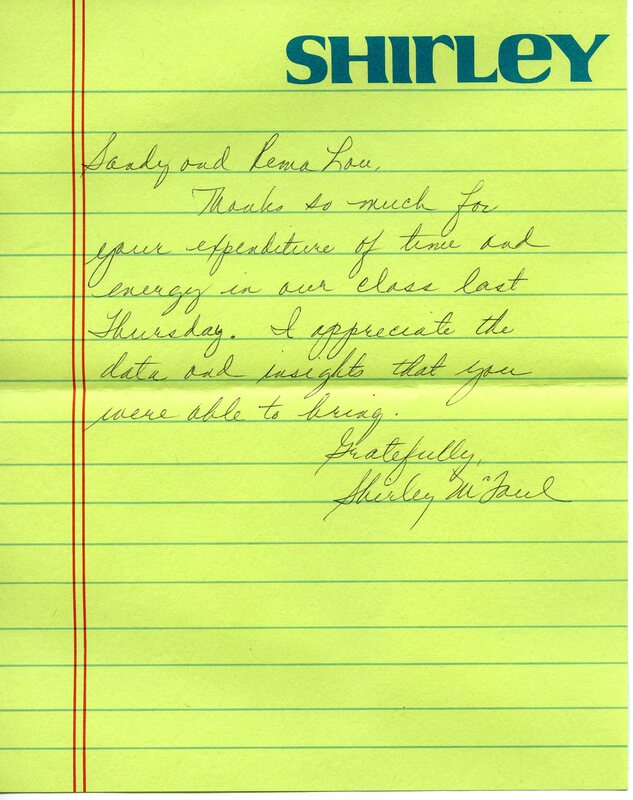 SHIRLEY
Sandy and Rema Lou,
Thanks so much for
your expenditure of time and
energy in our class last
Thursday. I appreciate the
data and insights that you
were able to bring.
Gratefully,
Shirley McFaul